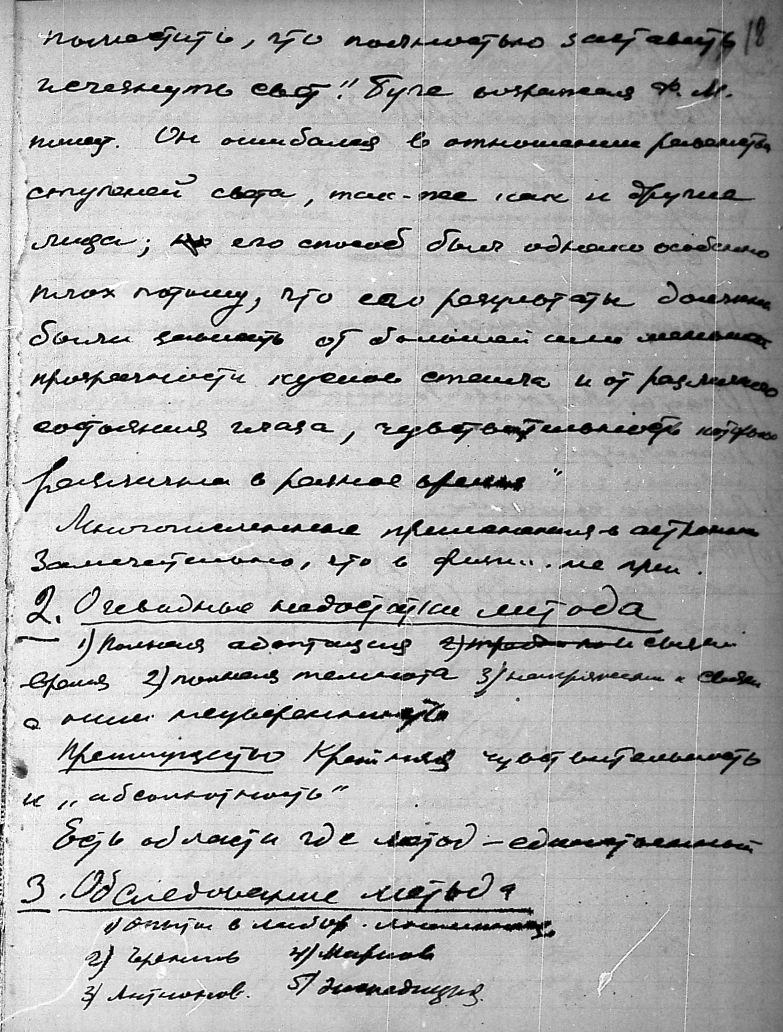 поместить, что полностью заставить 18
исчезнуть свет." Буге возражая Ф. М.
пишет. Он ошибался в отношении равенства
ступеней света, так-же как и другие
лица; его способ был однако особенно
плох потому, что его результаты должны
были зависеть от большей или меньшей
прозрачности кусков стекла и от различного
состояния глаза, чувствительность которого
различна в разное время"
Многочисленные применения в астрономии
Замечательно, что в физи. не прим.
2. Очевидные недостатки метода
1) Полная адаптация и связан
время 2) полная темнота 3) напряжение и связан
с ним неуверенность
Преимущество Крайняя чувствительность
и „абсолютность"
Есть области где метод – единственный
3. Обследование метода
1) Опыты в лабор.
2) Черенков 4) Марков
3) Антонов. 5) Экспедиция.